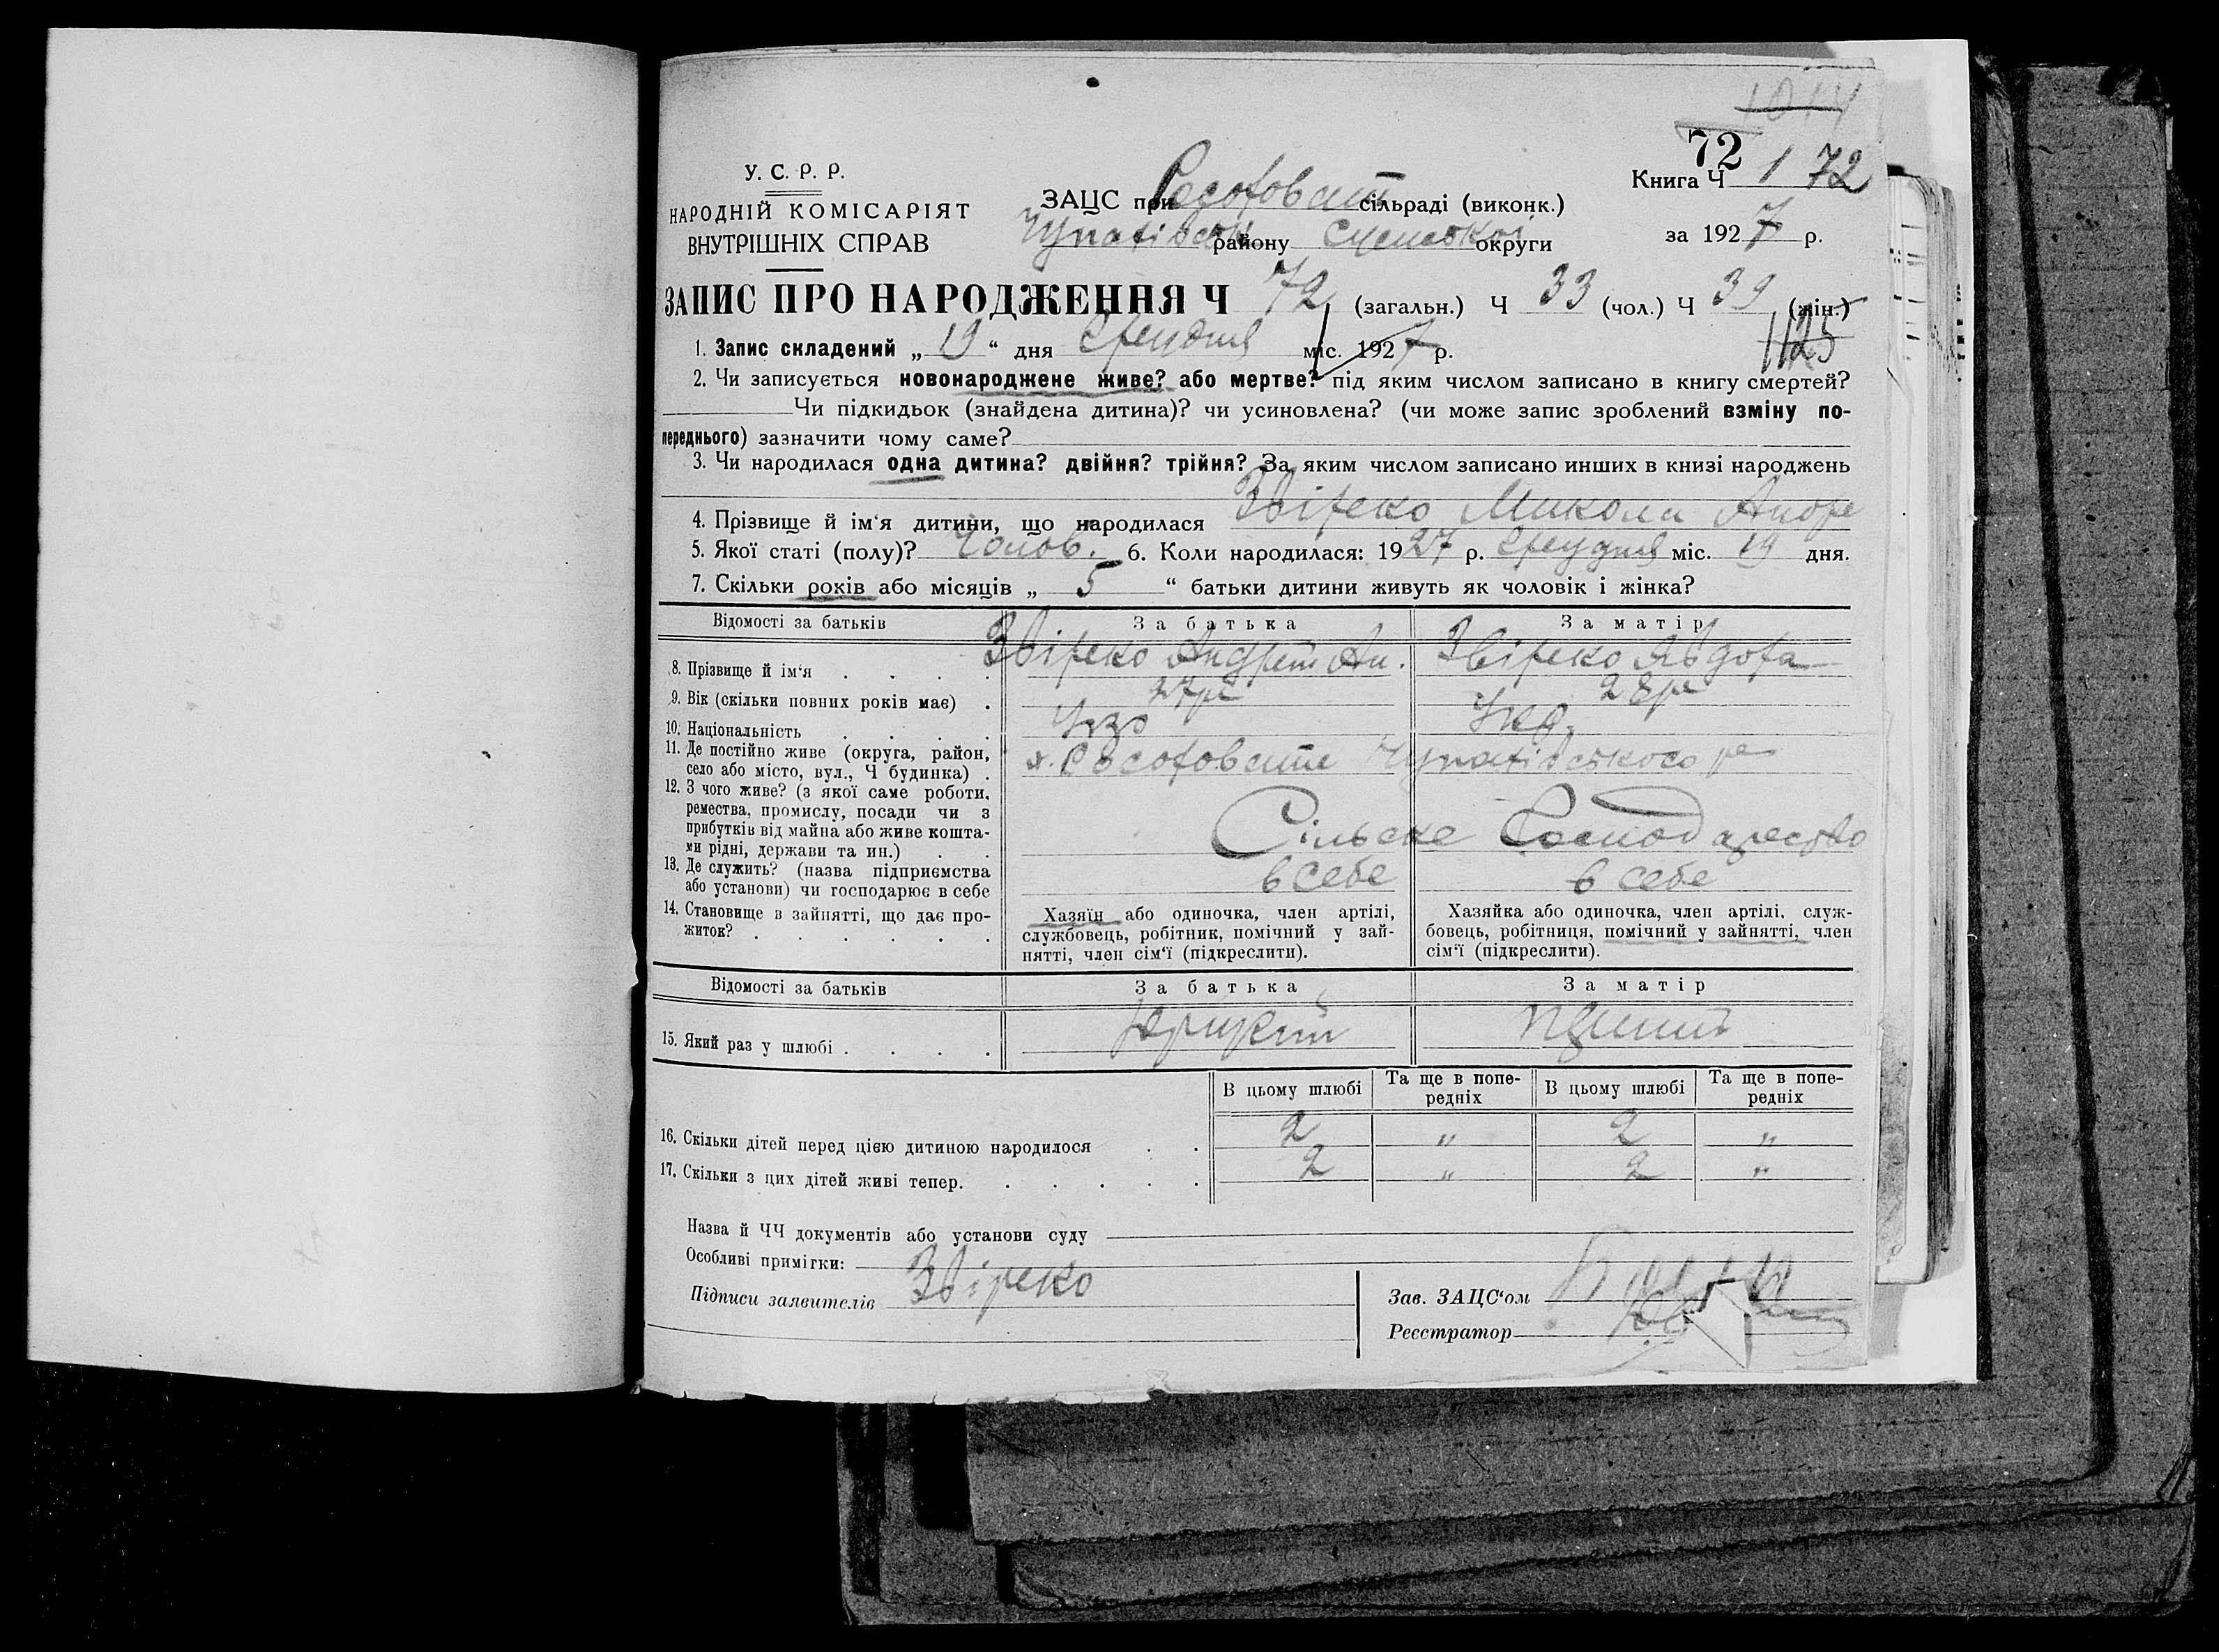 1014
72
У. С. Р. Р.
Книга Ч 1 72
НАРОДНІЙ КОМІСАРІЯТ
ВНУТРІШНІХ СПРАВ
ЗАЦС при сільраді (виконк.)
району Сумської округи
за 1927 р.
ЗАПИС ПРО НАРОДЖЕННЯ Ч 72 (загальн.) Ч 33 (чол.) Ч 39 (жін.)
1125
1. Запис складений „19“ дня Грудня міс. 1927 р.
2. Чи записується новонароджене живе? або мертве? під яким числом записано в книгу смертей?
Чи підкидьок (знайдена дитина)? чи усиновлена? (чи може запис зроблений взміну по-
переднього) зазначити чому саме?
3. Чи народилася одна дитина? двійня? трійня? За яким числом записано инших в книзі народжень
4. Прізвище й ім‘я дитини, що народилася Звіреко Микола Андре
5. Якої статі (полу)? Чолов. 6. Коли народилася: 1927 р. Грудня міс. 19 дня.
7. Скільки років або місяців „ 5 “ батьки дитини живуть як чоловік і жінка?
Відомості за батьків За батька За матір
8. Прізвище й ім‘я . . . . Звіреко Андрей Ан. Звіреко Явдоха
9. Вік (скільки повних років має) . 27 28
10. Національність . . . . Укр.
11. Де постійно живе (округа, район,
село або місто, вул., Ч будинка) . х.
12. З чого живе? (з якої саме роботи,
ремества, промислу, посади чи з
прибутків від майна або живе кошта-
ми рідні, держави та ин.) . . Сільске Господарство
13. Де служить? (назва підприємства
або установи) чи господарює в себе в себе в себе
14. Становище в зайнятті, що дає про-
житок? . . . . . .
Хазяїн або одиночка, член артілі,
службовець, робітник, помічний у зай-
нятті, член сім‘ї (підкреслити).
Хазяйка або одиночка, член артілі, служ-
бовець, робітниця, помічний у зайнятті, член
сім‘ї (підкреслити).
Відомості за батьків За батька За матір
15. Який раз у шлюбі . . . .
В цьому шлюбі Та ще в попе-
редніх В цьому шлюбі Та ще в попе-
редніх
16. Скільки дітей перед цією дитиною народилося . . 2 „ 2 „
17. Скільки з цих дітей живі тепер. . . . . . 2 „ 2 „
Назва й ЧЧ документів або установи суду
Особливі примітки:
Підписи заявителів Звіреко
Зав. ЗАЦС‘ом
Реєстратор